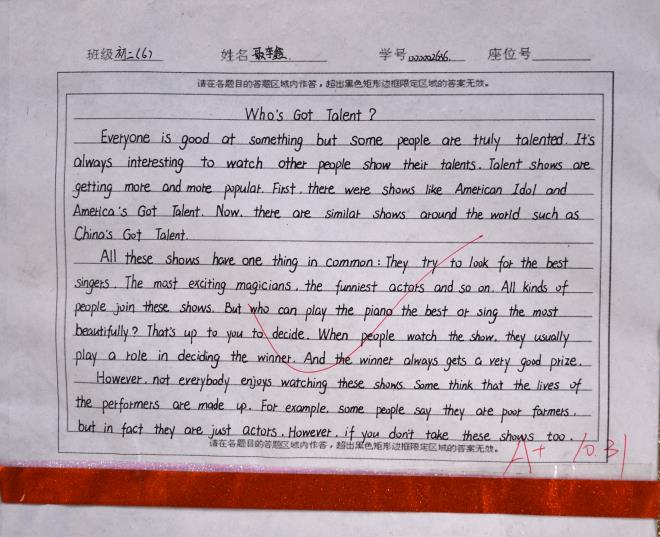 班级 初二(6) 姓名 学号 座位号
请在各题目的答题区域内作答，超出黑色矩形边框限定区域的答案无效。
Who's Got Talent ?
Everyone is good at something but some people are truly talented. It's
always interesting to watch other people show their talents. Talent shows are
getting more and more popular. First, there were shows like American Idol and
America's Got Talent. Now, there are similar shows around the world such as
China's Got Talent.
All these shows have one thing in common : They try to look for the best
singers. The most exciting magicians, the funniest actors and so on. All kinds of
people join these shows. But who can play the piano the best or sing the most
beautifully? That's up to you to decide. When people watch the show, they usually
play a role in deciding the winner. And the winner always gets a very good prize.
However, not everybody enjoys watching these shows. Some think that the lives of
the performers are made up. For example, some people say they are poor farmers,
but in fact they are just actors. However, if you don't take these shows too.
请在各题目的答题区域内作答，超出黑色矩形边框限定区域的答案无效。
A+ 10.31